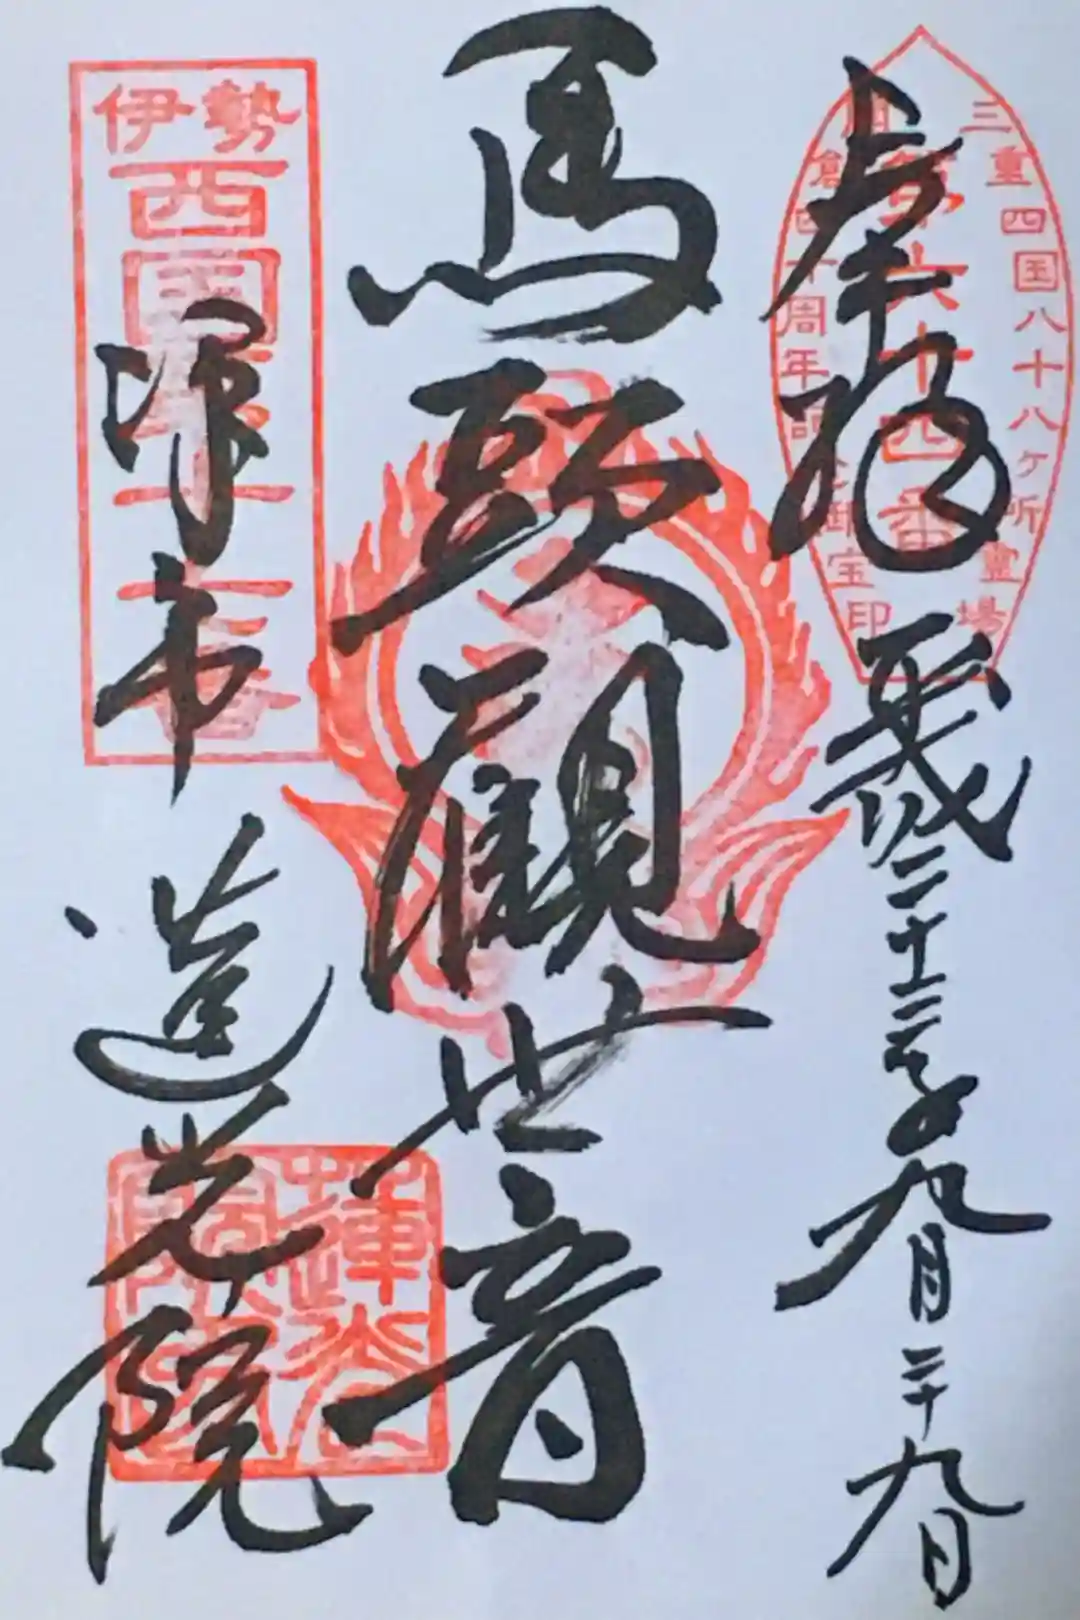 奉拝 平成二十三年九月二十九日
三重四国八十八ケ所霊場
第六十四番
開創四十周年記念御宝印
馬頭觀世音
伊勢
西国
津市 蓮光院